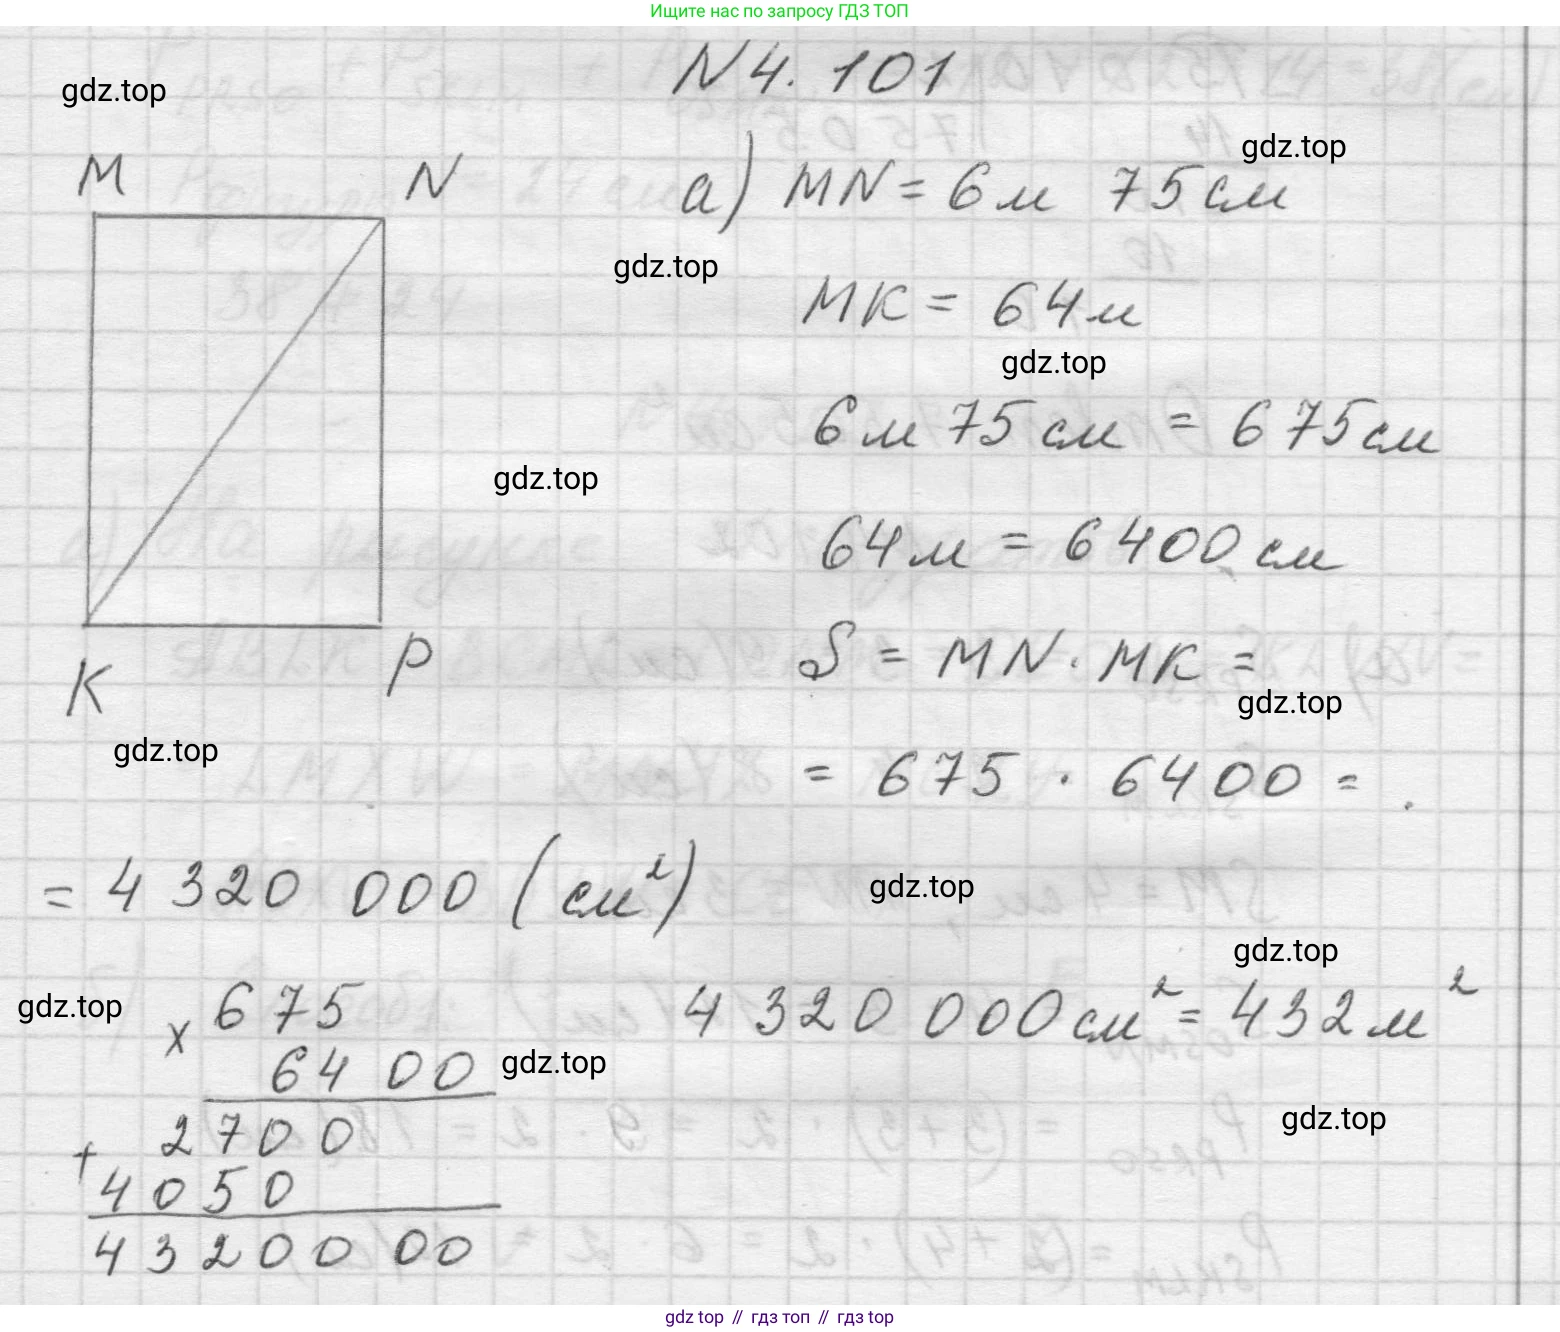 Ищите нас по запросу ГДЗ ТОП
N 4. 101
gdz.top
gdz.top
M N
а) MN = 6 м 75 см
gdz.top
MK = 64 м
gdz.top
6 м 75 см = 675 см
gdz.top
64 м = 6400 см
K P
S = MN · MK =
gdz.top
gdz.top
= 675 · 6400 =
= 4 320 000 (см²)
gdz.top
gdz.top
gdz.top
× 675
6400
2700
+ 4050
4320000
4 320 000 см² = 432 м²
gdz.top
gdz.top
gdz.top // гдз топ // гдз top